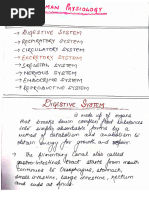 HUMAN PHYSIOLOGY
→ DIGESTIVE SYSTEM
→ RESPIRATORY SYSTEM
→ CIRCULATORY SYSTEM
→ EXCRETORY SYSTEM
→ SKELETAL SYSTEM
→ NERVOUS SYSTEM
→ ENDOCRINE SYSTEM
→ REPRODUCTIVE SYSTEM
DIGESTIVE SYSTEM
is made up of organs
that breaks down complex food substances
into simple absorbable forms by a
of catabolism and anabolism to
obtain energy for growth and repair.
→ The alimentary canal also called
gastro-intestinal tract starts from mouth
continues to Oesophagus, stomach,
small intestine, large intestine, rectum
and ends at anus.